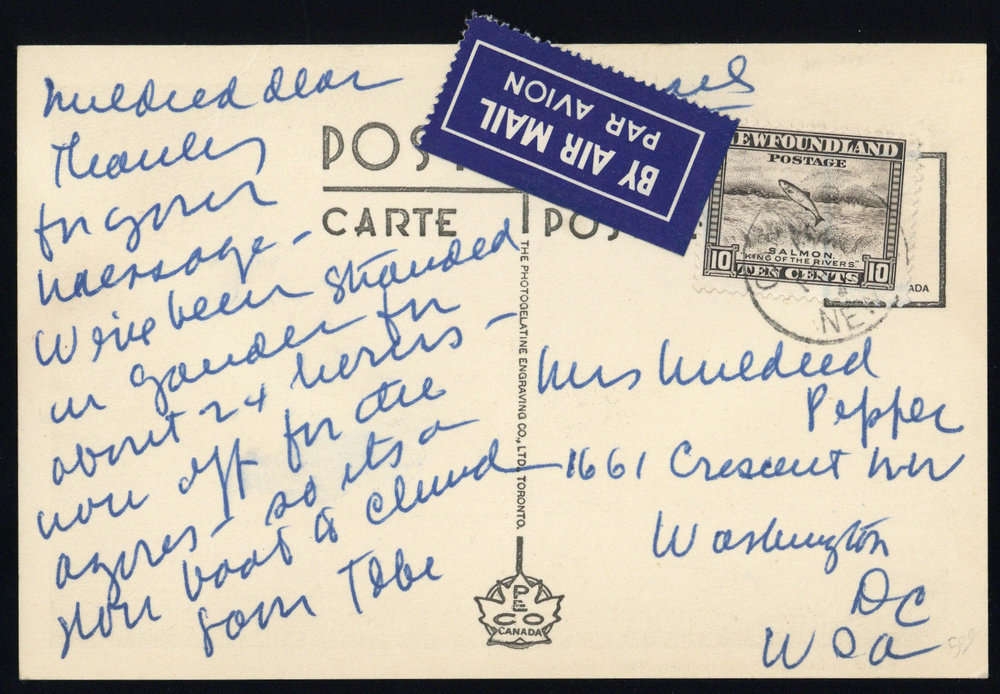 Mildred dear
Thanks
for your
message -
We've been stranded
in Gander for
about 24 hours -
now off for the
azores - so its a
slow boat to
from
POS
CARTE POS
BY AIR MAIL
PAR AVION
NEWFOUNDLAND
POSTAGE
SALMON.
"KING OF THE RIVERS"
10 TEN CENTS 10
NE
ADA
THE PHOTOGELATINE ENGRAVING CO., LTD. TORONTO.
Mrs Mildred
Pepper
1661 Crescent NW
Washington
DC
USA
PECO
CANADA